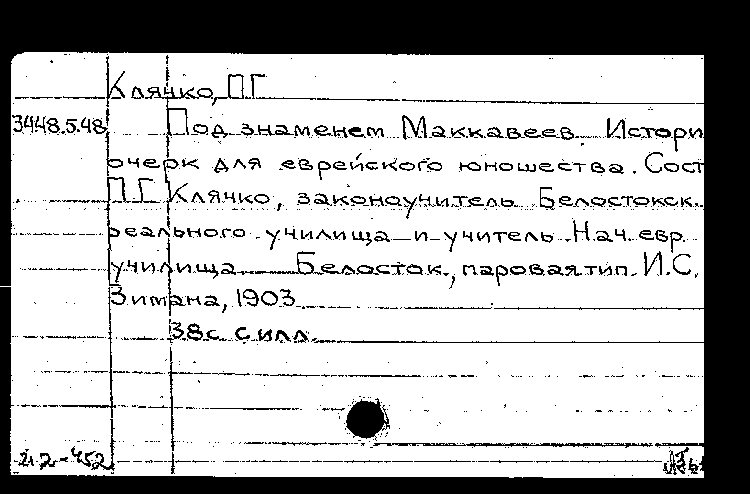 Клячко, П.Г
3448.5.48 Под знаменем Маккавеев. Истори
очерк для еврейского юношества. Сост
П.Г. Клячко, законоучитель Белостокск.
реального училища и учитель Нач. евр.
училища. Белосток, паровая тип. И.С.
Зимана, 1903
38с с илл.
21.2-452